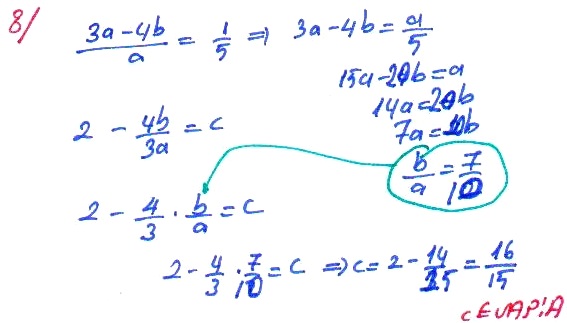 8/
(3a-4b)/a = 1/5 ⇒ 3a-4b = a/5
15a-20b=a
14a=20b
7a=10b
2 - 4b/3a = c
b/a = 7/10
2 - 4/3 · b/a = c
2 - 4/3 · 7/10 = c ⇒ c = 2 - 14/15 = 16/15
CEVAP:A